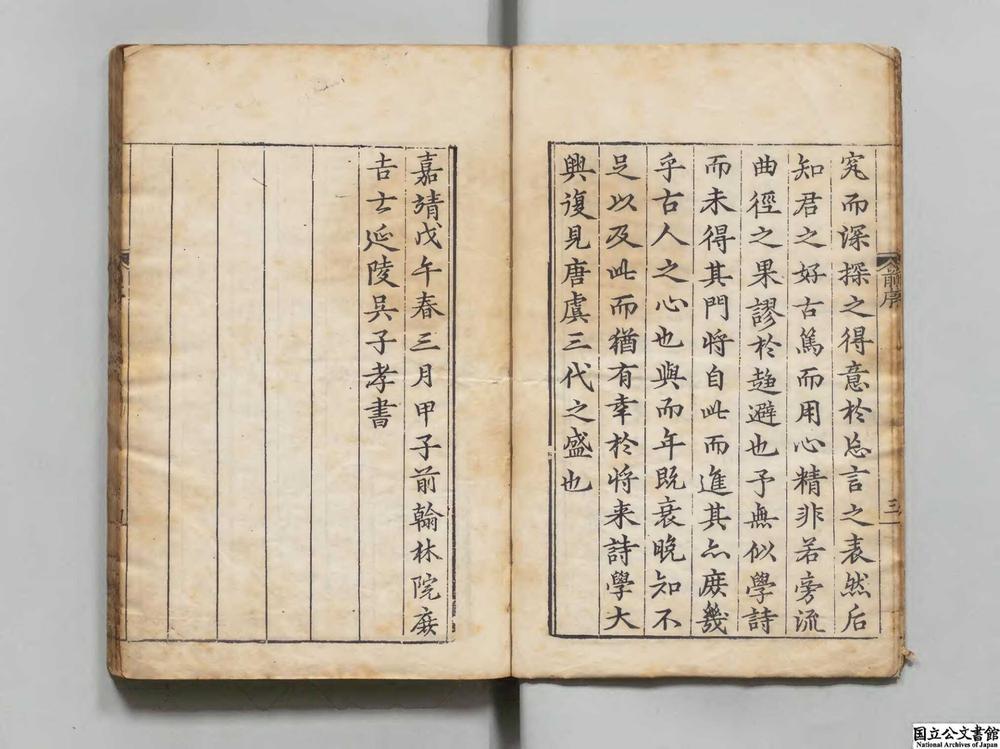 究而深探之得意於忘言之表然后
知君之好古篤而用心精非若旁流
曲徑之果謬於趨避也予無似學詩
而未得其門将自此而進其亦庶幾
乎古人之心也與而年既衰晚知不
足以及此而猶有幸於将来詩學大
興復見唐虞三代之盛也
三
嘉靖戊午春三月甲子前翰林院庶
吉士延陵吳子孝書
国立公文書館
National Archives of Japan